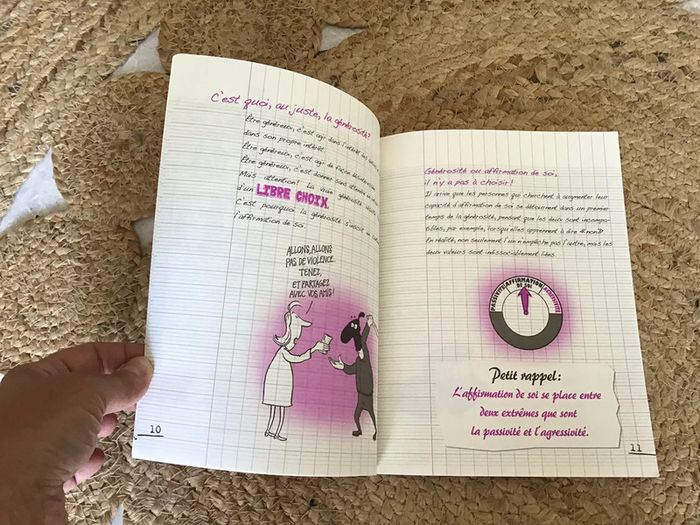 C'est quoi, au juste, la générosité?
Être généreux, c'est agir dans l'intérêt
dans son propre intérêt.
Être généreux, c'est agir de façon
Être généreux, c'est donner sans attendre
Mais attention! La vraie générosité
d'un LIBRE CHOIX.
C'est pourquoi la générosité s'inscrit
l'affirmation de soi.
ALLONS, ALLONS
PAS DE VIOLENCE.
TENEZ,
ET PARTAGEZ
AVEC VOS AMIS!
10
Générosité ou affirmation de soi,
il n'y a pas à choisir!
Il arrive que les personnes qui cherchent à augmenter leur
capacité d'affirmation de soi se détournent dans un premier
temps de la générosité, pensant que les deux sont incompa-
tibles, par exemple, lorsqu'elles apprennent à dire «non».
En réalité, non seulement l'un n'empêche pas l'autre, mais les
deux valeurs sont indissociablement liées.
PASSIVITÉ AFFIRMATION DE SOI AGRESSIVITÉ
Petit rappel:
L'affirmation de soi se place entre
deux extrêmes que sont
la passivité et l'agressivité.
11